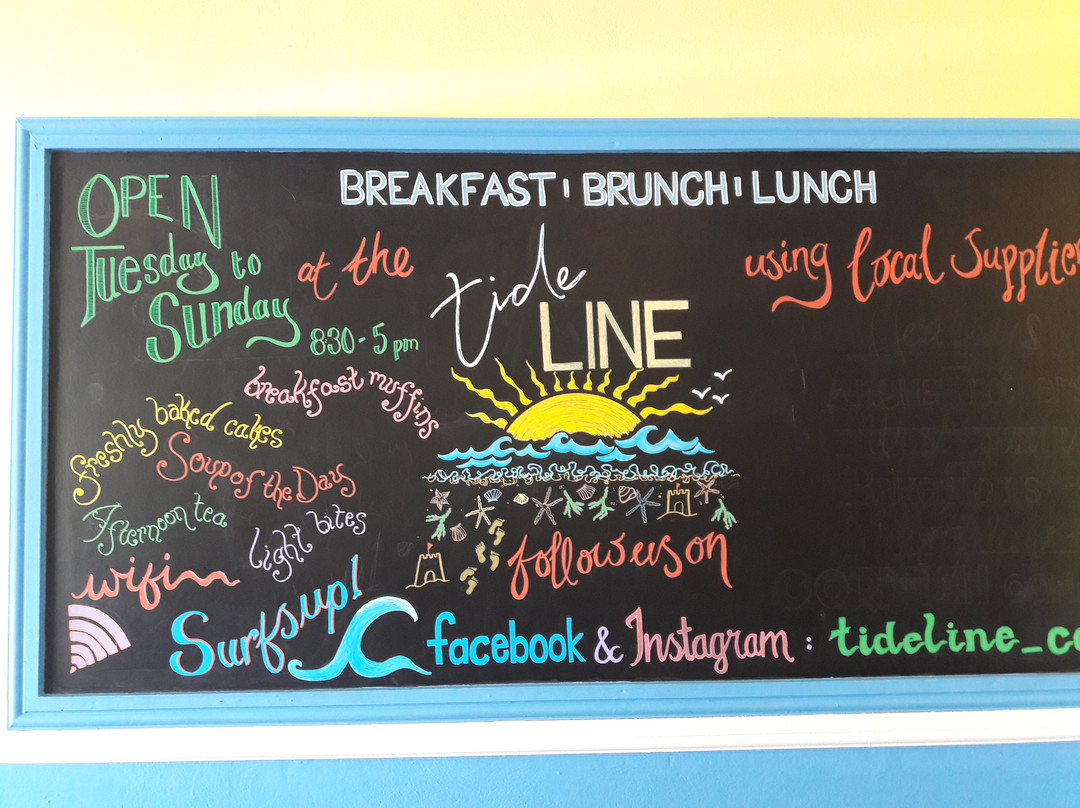 BREAKFAST | BRUNCH | LUNCH
OPEN
Tuesday to
Sunday
8:30 - 5 pm
at the
tide
LINE
using local Supplier
breakfast muffins
freshly baked cakes
Soup of the Day
Afternoon tea
light bites
wifi
Surfs up!
follow us on
facebook & Instagram : tideline_c